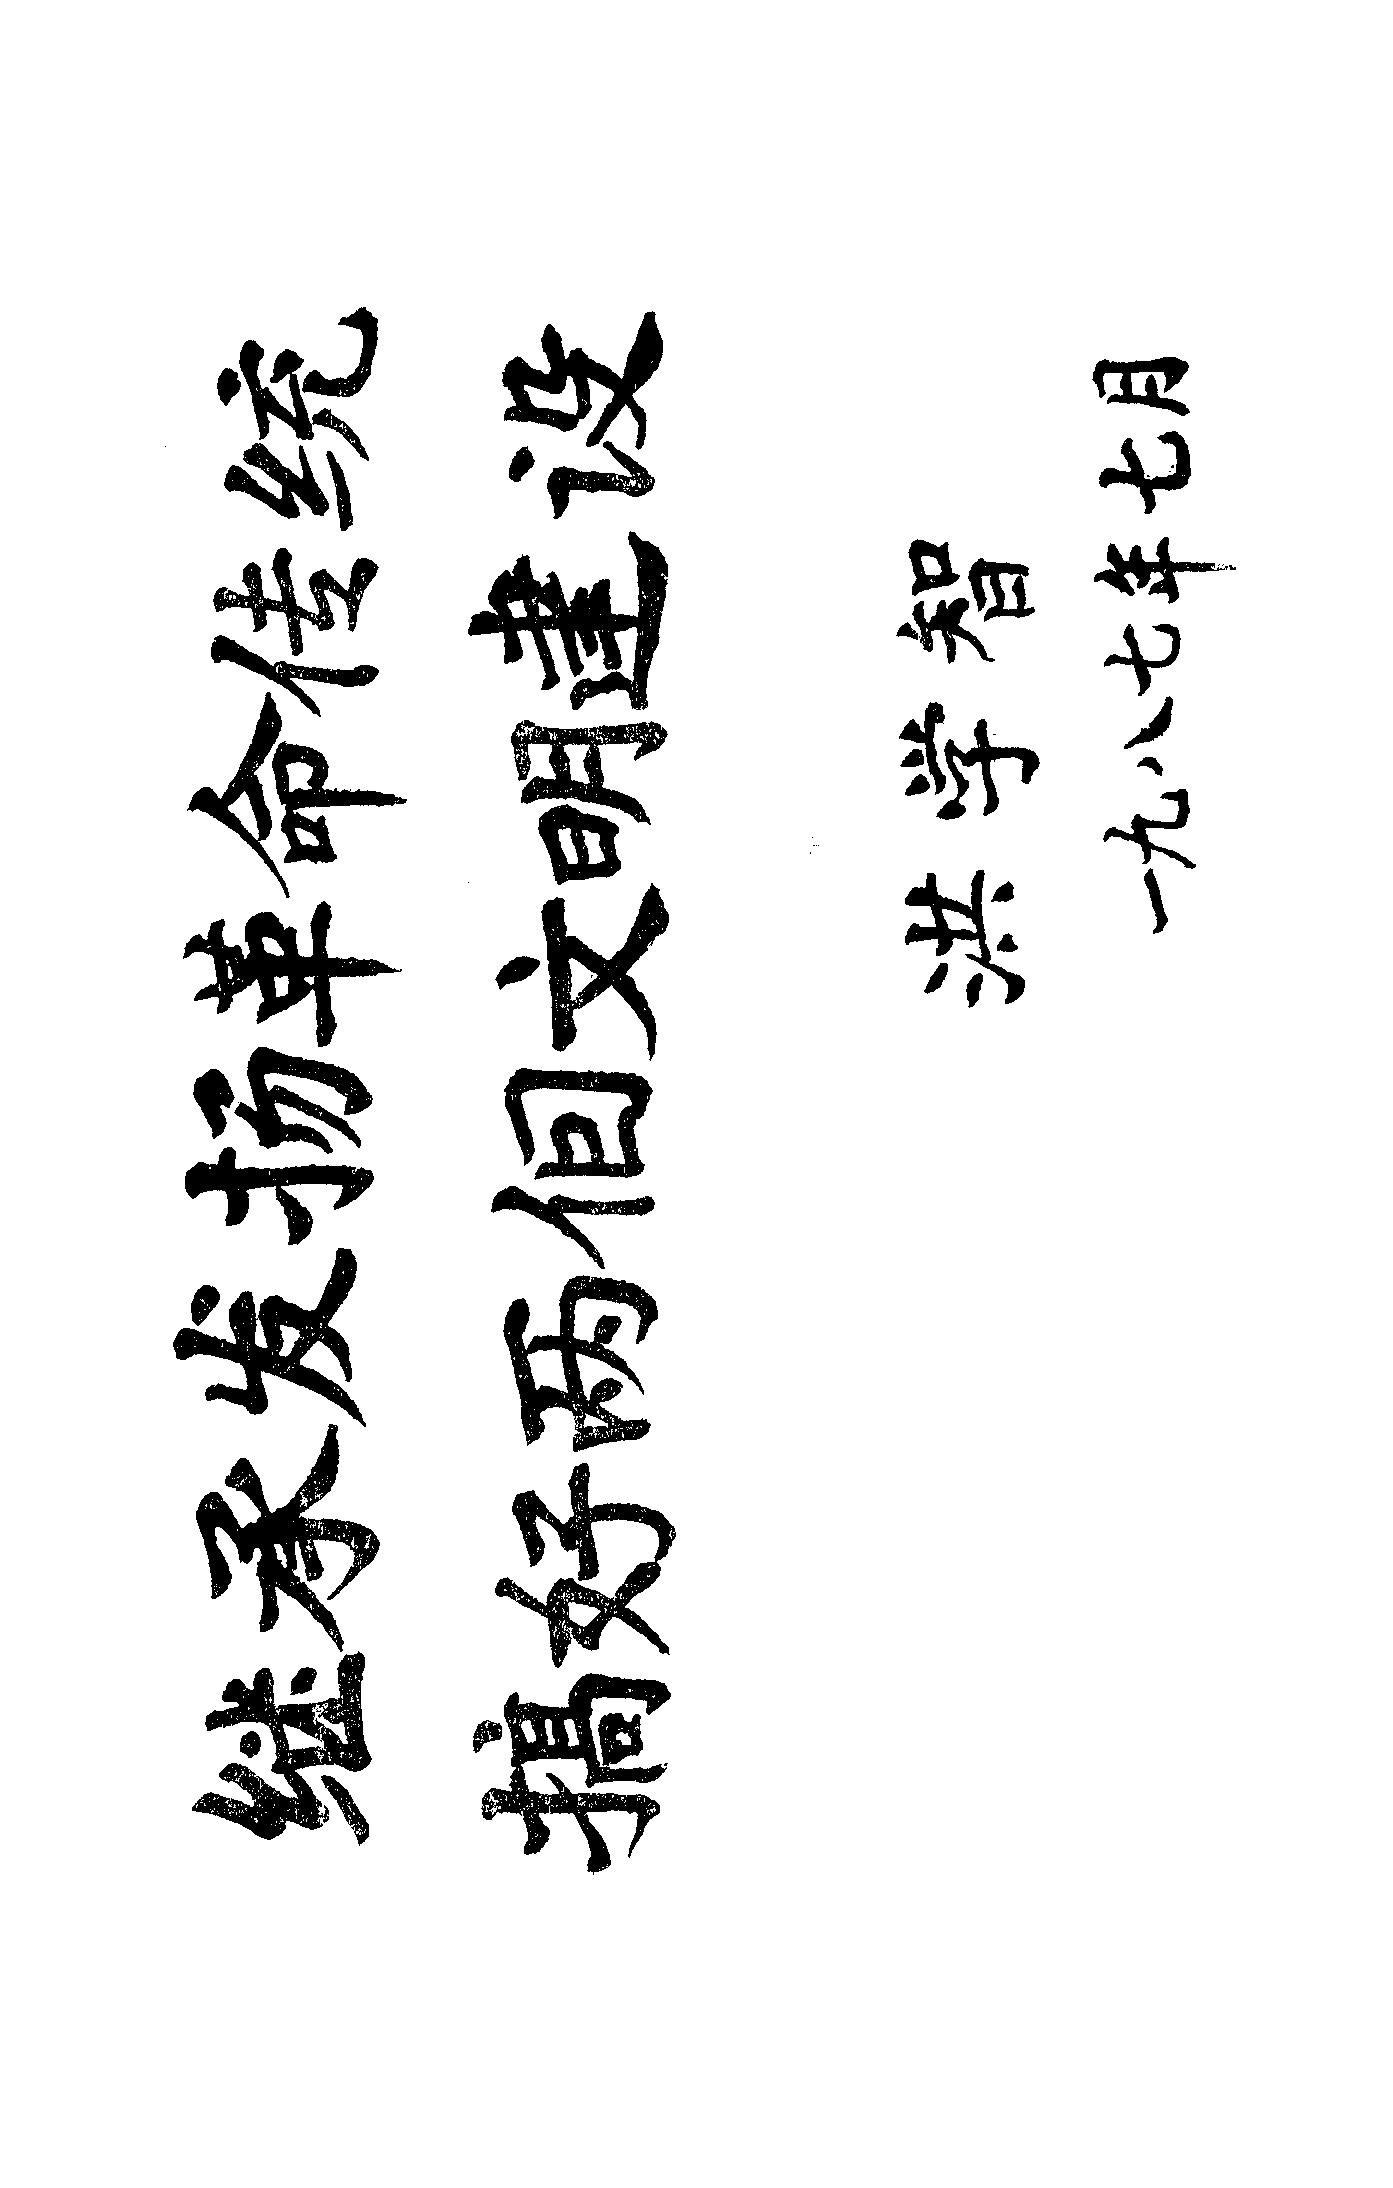 继承发扬革命传统
搞好两個文明建设
洪学智
一九八七年七月